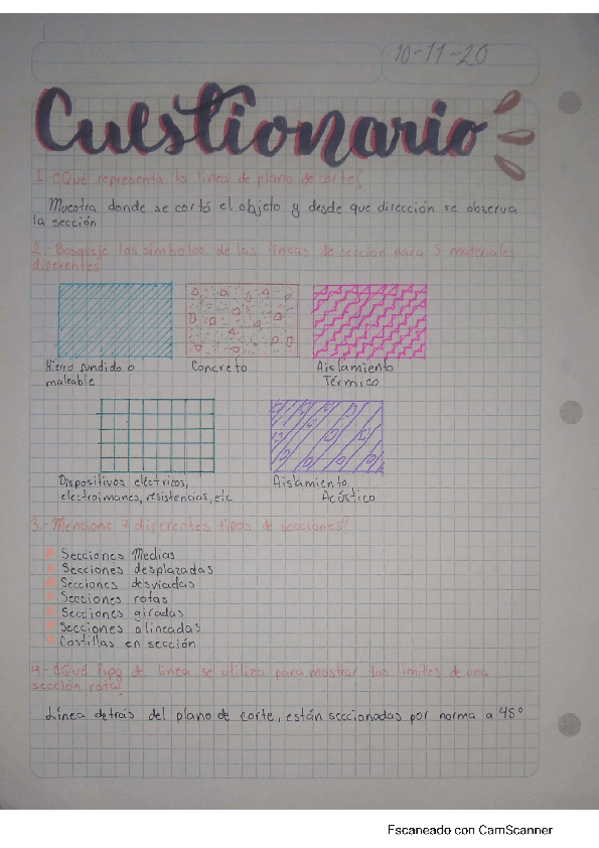 10-11-20
Cuestionario
1.- ¿Qué representa la línea de plano de corte?
Muestra donde se cortó el objeto y desde que dirección se observa
la sección
2.- Bosqueje los símbolos de las líneas de sección para 5 materiales
diferentes
Hierro fundido o
maleable
Concreto
Aislamiento
Térmico
Dispositivos eléctricos,
electroimanes, resistencias, etc
Aislamiento
Acústico
3.- Mencione 7 diferentes tipos de secciones?
Secciones Medias
Secciones desplazadas
Secciones desviadas
Secciones rotas
Secciones giradas
Secciones alineadas
Costillas en sección
4.- ¿Qué tipo de línea se utiliza para mostrar los límites de una
sección rota?
Línea detrás del plano de corte, están seccionadas por norma a 45°
Escaneado con CamScanner